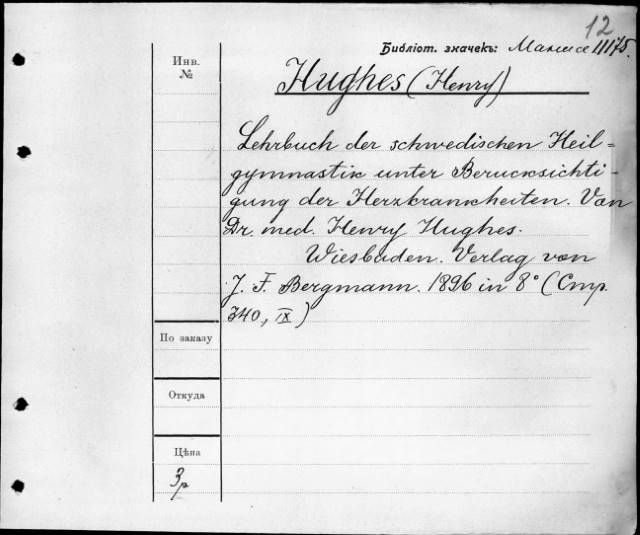 12
Библіот. значекъ: 11175.
Инв.
№
Hughes (Henry)
Lehrbuch der schwedischen Heil=
gymnastik unter Berucksichti-
gung der Herzkrankheiten. Von
Dr. med. Henry Hughes.
Wiesbaden. Verlag von
J. F. Bergmann. 1896 in 8° (Стр.
340, IX)
По заказу
Откуда
Цѣна
3р